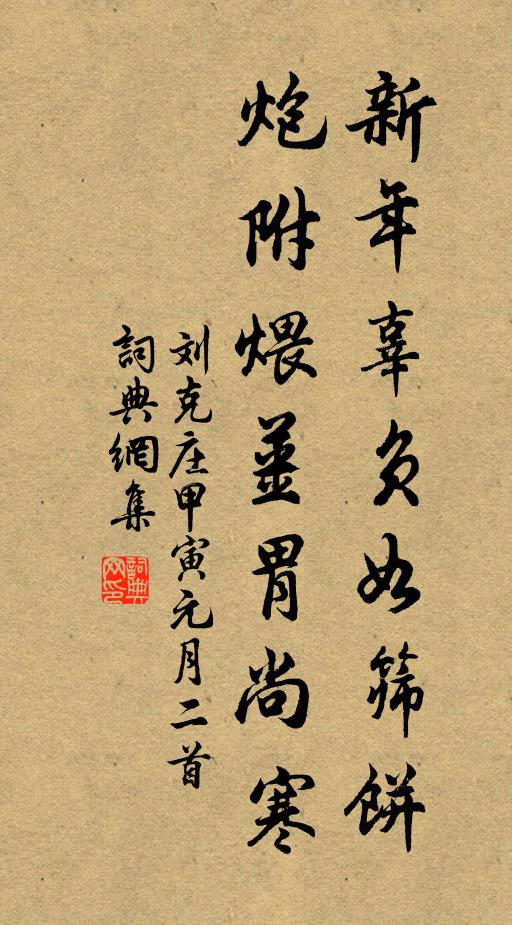 新年辜负如筛餅
炮附煨薑胃尚寒
刘克庄甲寅元月二首
詞典網集
詞典网印